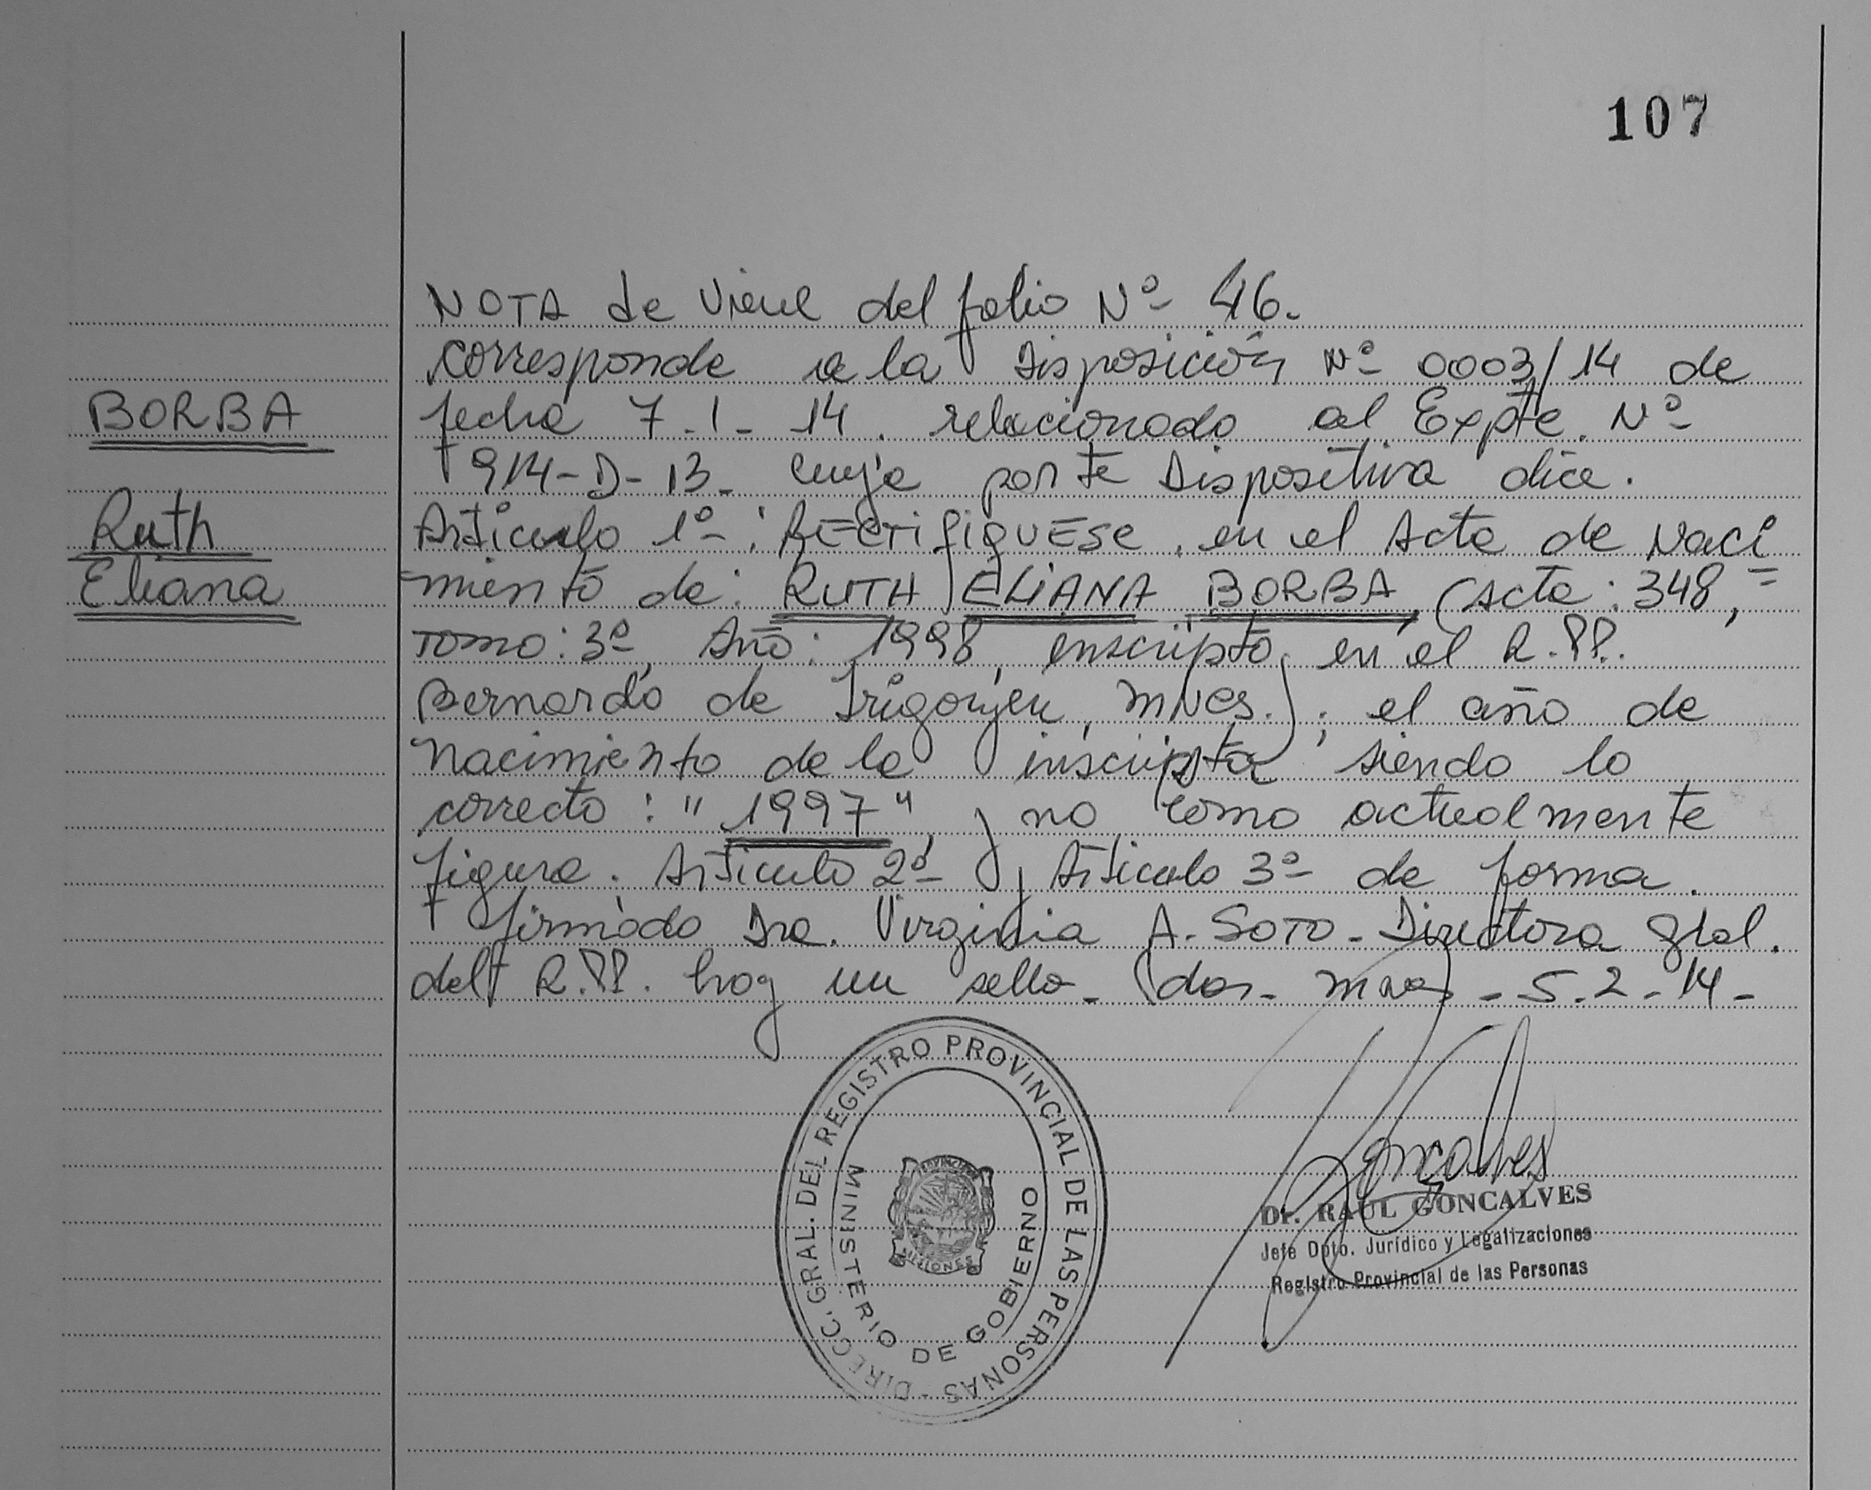 107
NOTA de viene del folio Nº 46.
corresponde a la Disposición Nº 0003/14 de
BORBA
fecha 7-1-14. relacionado al Expte. Nº
914-D-13- cuya parte Dispositiva dice.
Ruth
Articulo 1º: RECTIFIQUESE, en el Acta de Naci
Eliana
miento de: RUTH ELIANA BORBA, (Acta: 348,
Tomo: 3º, Año: 1998, inscripto, en el R.PP.
Bernardo de Irigoyen, Mnes.); el año de
Nacimiento de la inscripta siendo lo
correcto: "1997", y no como actualmente
figura. Articulo 2º y Articulo 3º de forma.
firmado Dra. Virginia A. SOTO - Directora Gral.
del R.PP. hay un sello - 5-2-14-
DIRECC. GRAL. DEL REGISTRO PROVINCIAL DE LAS PERSONAS -
MINISTERIO DE GOBIERNO
PROVINCIA
MISIONES
Goncalves
Dr. RAUL GONCALVES
Jefe Dpto. Jurídico y Legalizaciones
Registro Provincial de las Personas